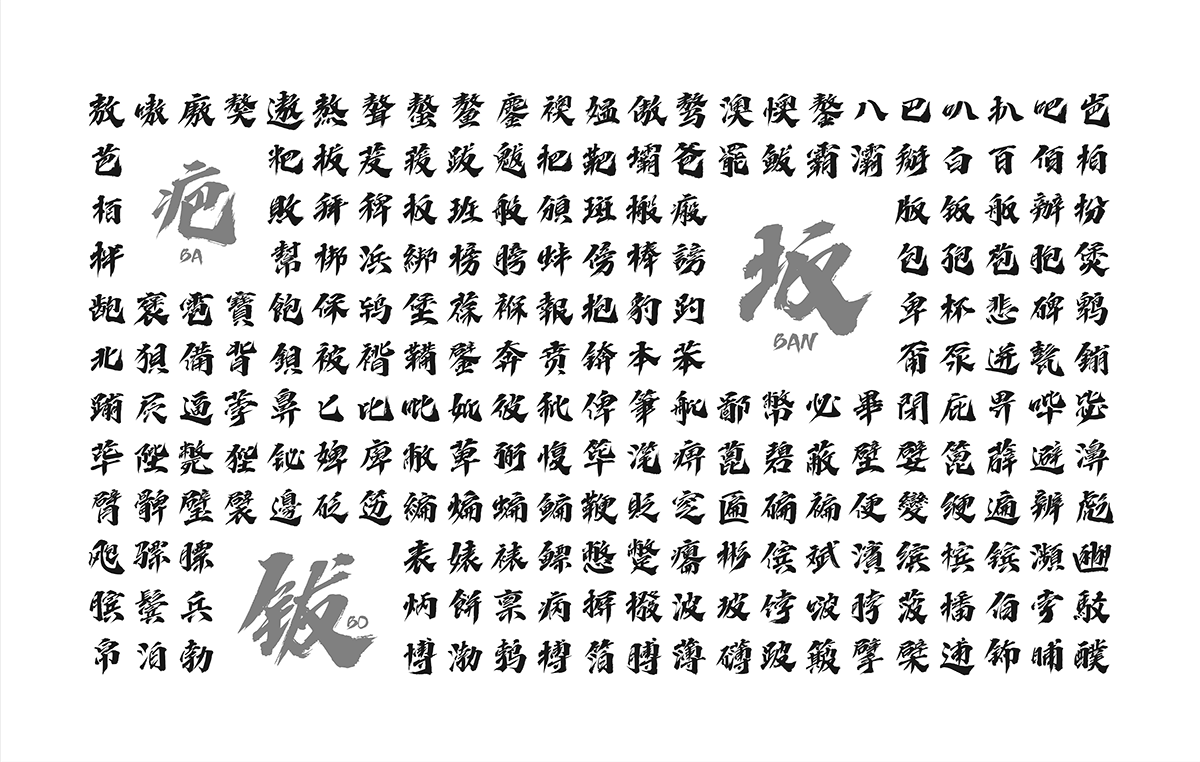 敖嗷廒獒遨熬聱螯鳌鏖袄媪傲骜澳懊鏊八巴叭扒吧岜
芭粑拔茇菝跋魃把靶壩爸罷鲅霸灞掰白百佰柏
栢敗拜稗板班般頒斑搬瘢版钣舨辦扮
拌幫梆浜綁榜膀蚌傍棒謗包孢苞胞煲
龅褒雹寶飽保鸨堡葆褓報抱豹趵卑杯悲碑鹎
北狽備背鋇被褙鞴鐾奔贲锛本苯甭泵迸甏鏰
蹦逼荸鼻匕比吡妣彼秕俾筆舭鄙幣必畢閉庇畀哔毖
荜陛斃狴铋婢庳敝萆弼愎筚滗痹蓖碧蔽壁嬖篦薜避濞
臂髀璧襞邊砭笾編煸蝙鳊鞭貶窆匾碥褊便變緶遍辨彪
飑骠膘表婊裱鳔憋蹩癟彬傧斌濱缤槟镔瀕豳
膑鬓兵炳餅禀病摒撥波玻饽啵脖菠播伯孛駁
帛泊勃博渤鹁搏箔膊薄礴跛簸擘檗逋钸晡醭
疤
BA
坂
BAN
钹
BO